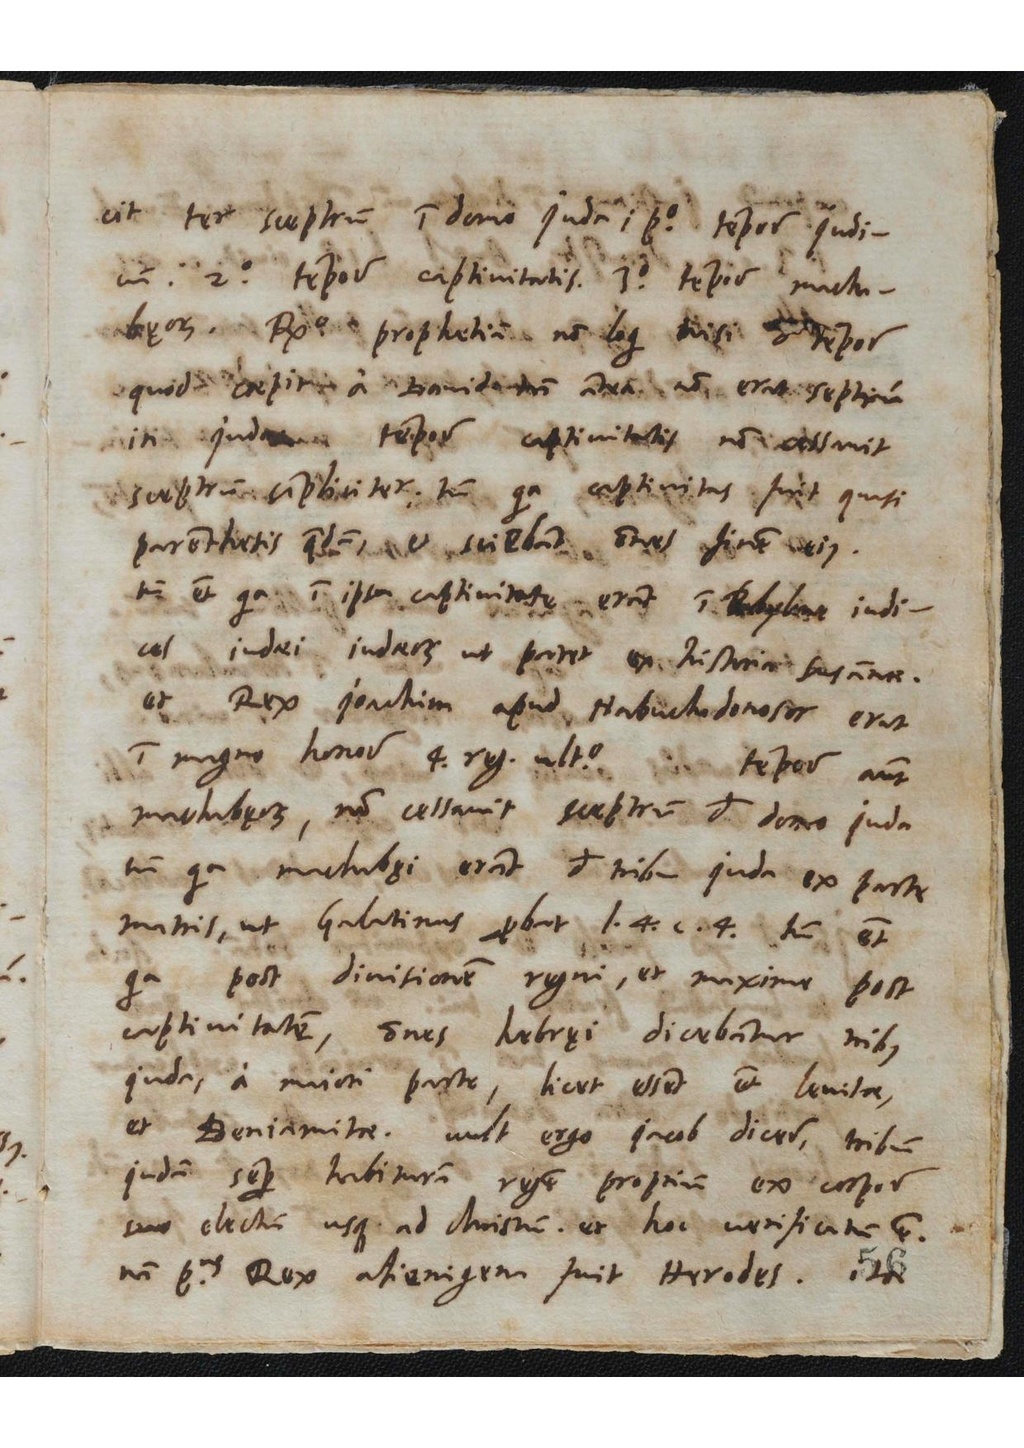 cit ter sceptrũ ĩ domo Juda; p.º tẽpor Judi-
cũ. 2.º tẽpor captiuitatis. 3.º tẽpor macha-
bęoꝝ. Rx.º prophetiã nõ loq nisi tẽpor
quod cœpit à Dauide nã ãtea nõ erat sceptrũ
iñ Juda tẽpor captiuitatis nõ cessauit
sceptrũ sĩpliciter. tũ qa captiuitas fuit quasi
parẽthesis q̃dã, et sciebãt õnes finẽ eiꝰ.
tũ ẽt qa ĩ ipsa captiuitate erãt ĩ Babylone iudi-
ces iudæi iudæoꝝ ut patet ex historia Susãnæ.
et Rex Joachim apud Nabuchodonosor erat
ĩ magno honor 4. reg. ult.º tẽpor aũt
machabęoꝝ, nõ cessauit sceptrũ d̃ domo Juda
tũ qa machabęi erãt d̃ tribu Juda ex parte
matris, ut Galatinus ꝓbat l. 4. c. 4. tũ ẽt
qa post diuisionẽ regni, et maxime post
captiuitatẽ, õnes hebręi dicebãtur tribꝰ
Juda, à maiori parte, licet essẽt ẽt leuitæ,
et Beniamitæ. uult ergo Jacob dicer, tribũ
Judã sẽp habiturã regẽ propriũ ex corpor
suo electũ usq ad christũ. et hoc uerificatũ ẽ.
nã p.ꝰ Rex alienigena fuit Herodes.
56